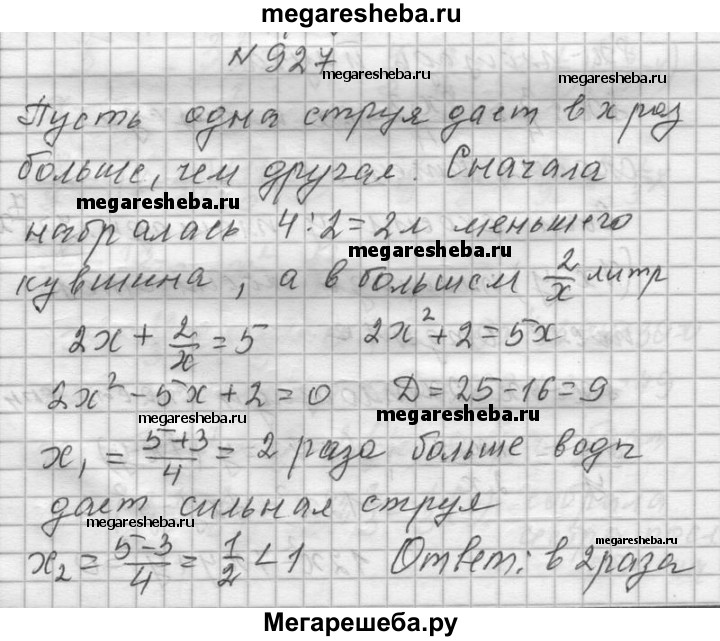 megaresheba.ru
N 927
megaresheba.ru megaresheba.ru
Пусть одна струя дает в x раз
больше, чем другая. Сначала
megaresheba.ru
набралась 4:2=2л меньшего
megaresheba.ru
кувшина, а в большем 2/x литр
2x + 2/x = 5 2x² + 2 = 5x
2x² - 5x + 2 = 0 Д = 25 - 16 = 9
megaresheba.ru megaresheba.ru
x₁ = (5+3)/4 = 2 раза больше воды
дает сильная струя
megaresheba.ru megaresheba.ru
x₂ = (5-3)/4 = 1/2 < 1 Ответ: в 2 раза
Мегарешеба.ру